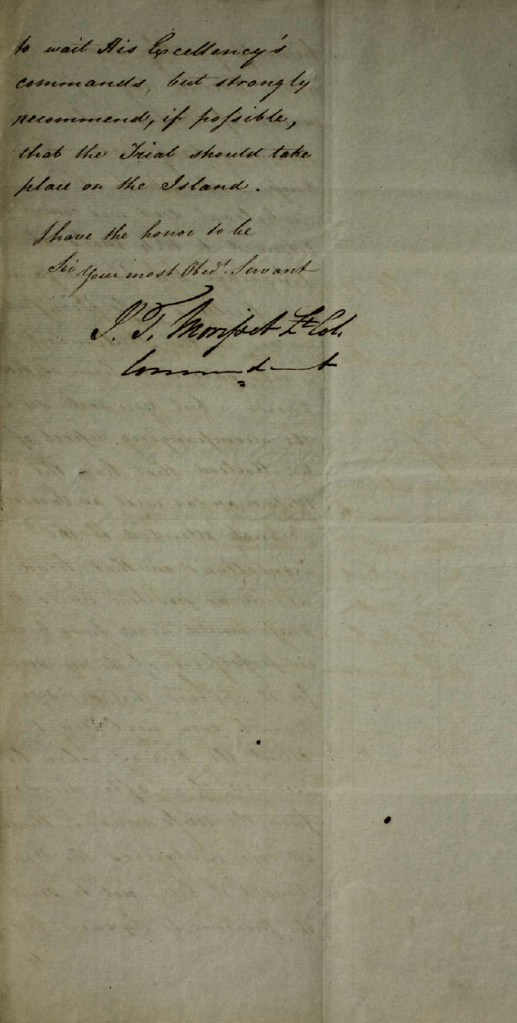 to wait His Excellency's
commands, but strongly
recommend, if possible,
that the Trial should take
place on the Island.
I have the honor to be
Sir Your most Obedt. Servant
J. T. Morisset Lt Col.
Commandant